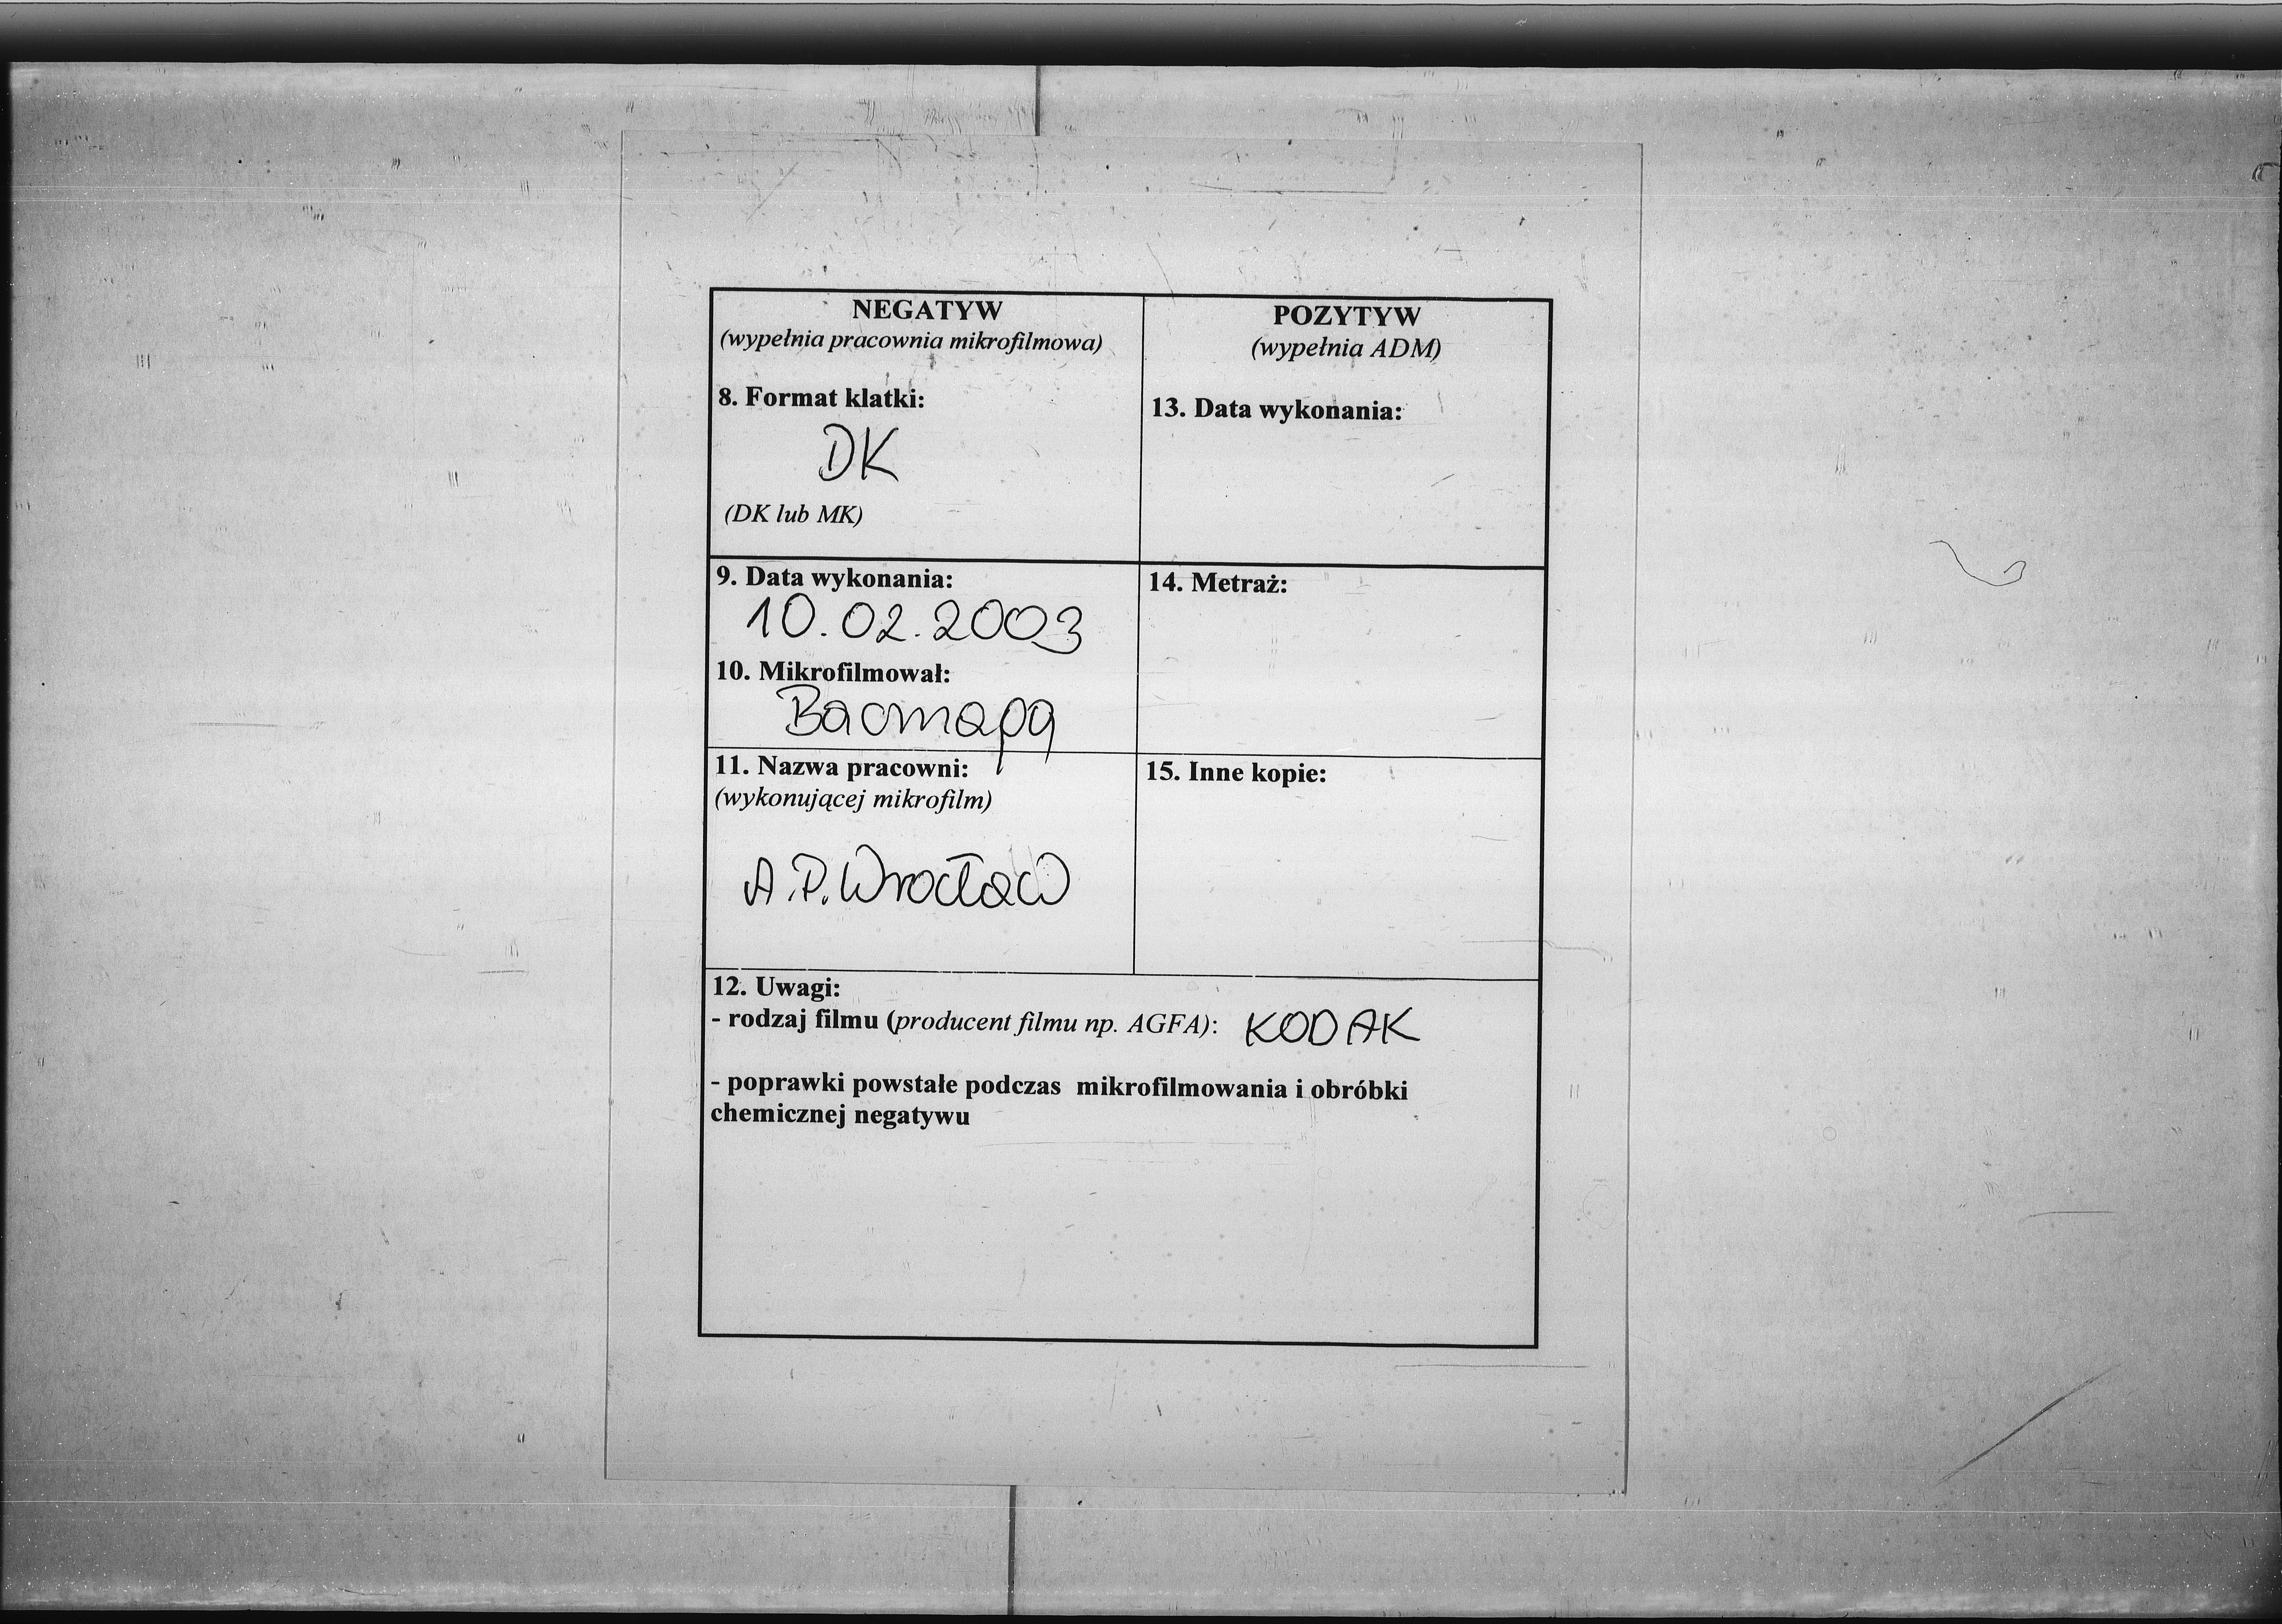 NEGATYW
(wypełnia pracownia mikrofilmowa)
8. Format klatki:
DK
(DK lub MK)
POZYTYW
(wypełnia ADM)
13. Data wykonania:
9. Data wykonania:
10.02.2003
10. Mikrofilmował:
14. Metraż:
11. Nazwa pracowni:
(wykonującej mikrofilm)
A.P. Wrocław
15. Inne kopie:
12. Uwagi:
- rodzaj filmu (producent filmu np. AGFA): KODAK
- poprawki powstałe podczas mikrofilmowania i obróbki
chemicznej negatywu